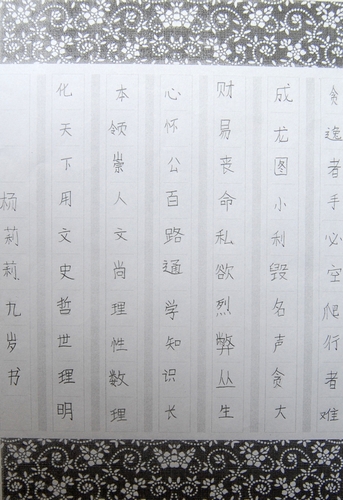 贪逸者手必空爬行者难
成龙图小利毁名声贪大
财易丧命私欲烈弊丛生
心怀公百路通学知识长
本领崇人文尚理性数理
化天下用文史哲世理明
杨莉莉九岁书